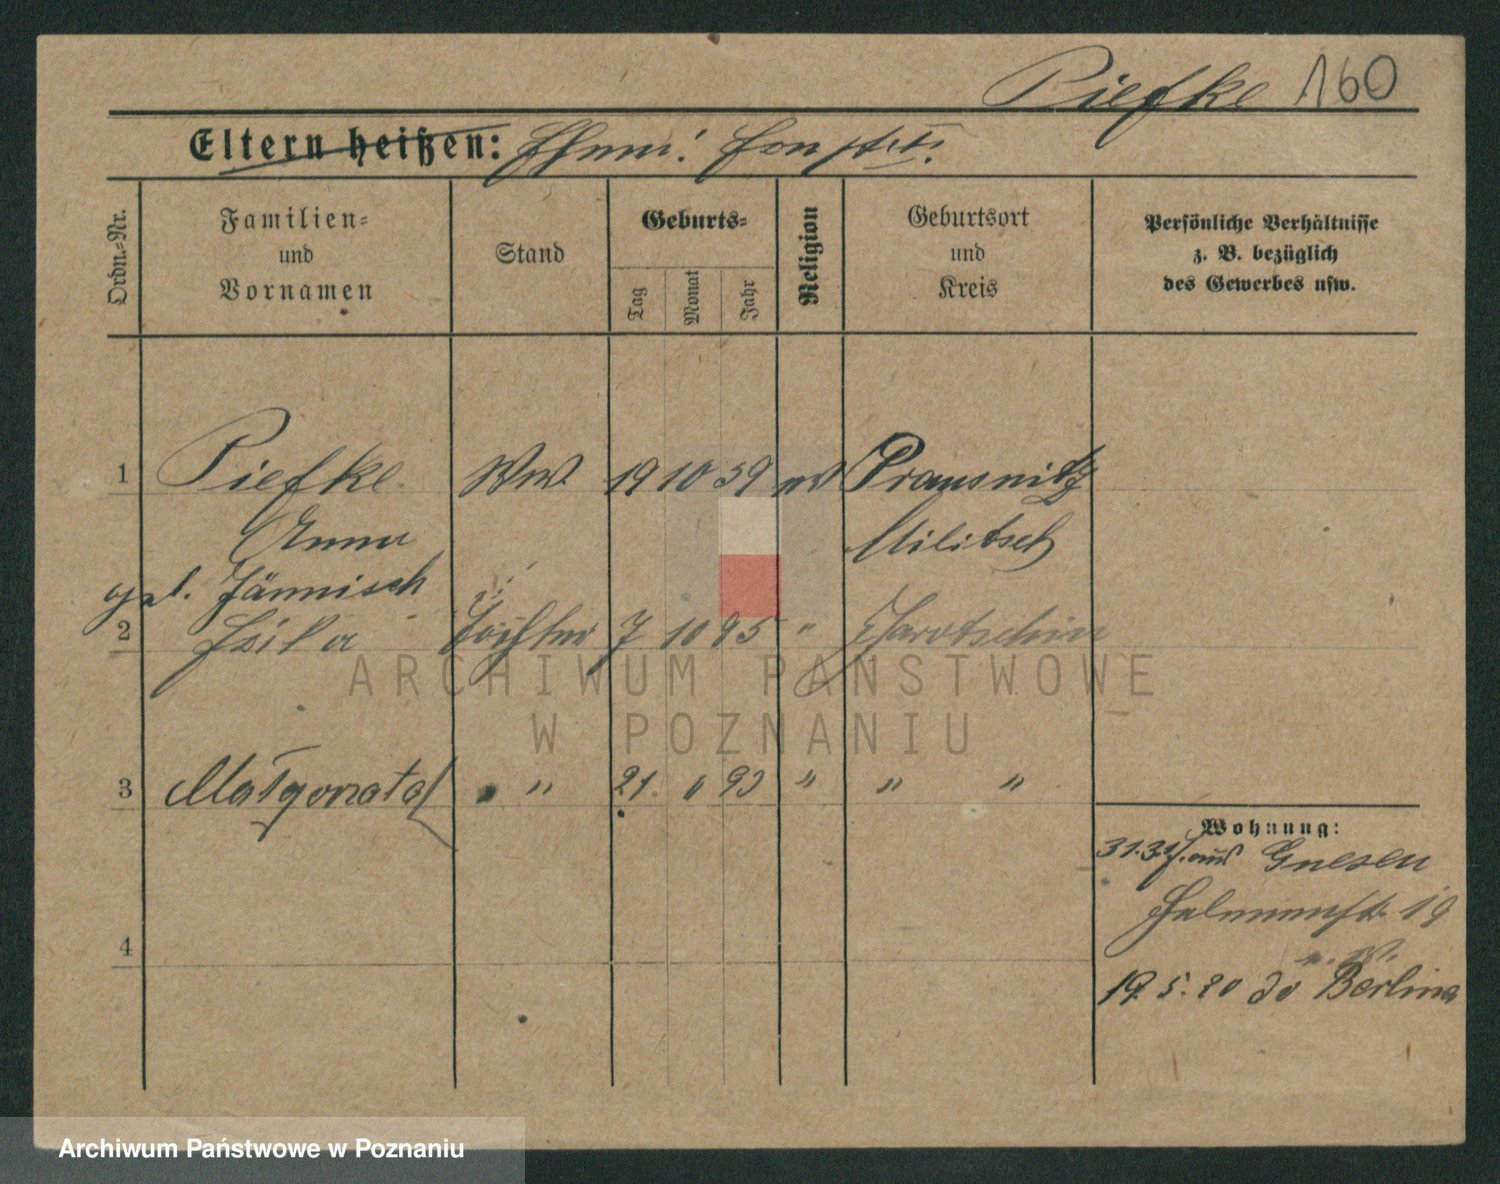 Piefke 160
Eltern heißen:
Ordn.-Nr.
Familien-
und
Vornamen
Stand
Geburts-
Tag
Monat
Jahr
Religion
Geburtsort
und
Kreis
Persönliche Verhältnisse
z. B. bezüglich
des Gewerbes usw.
1 Piefke Ww. 19 10 59 Prausnitz
Anna Militsch
geb. Jännisch
2 Tochter 7 10 95 " Jarotschin
3 Małgorzata " 21 " 93 " " "
4
Wohnung:
aus Gnesen
19
19. 5. 20 do Berlina
ARCHIWUM PAŃSTWOWE
W POZNANIU
Archiwum Państwowe w Poznaniu